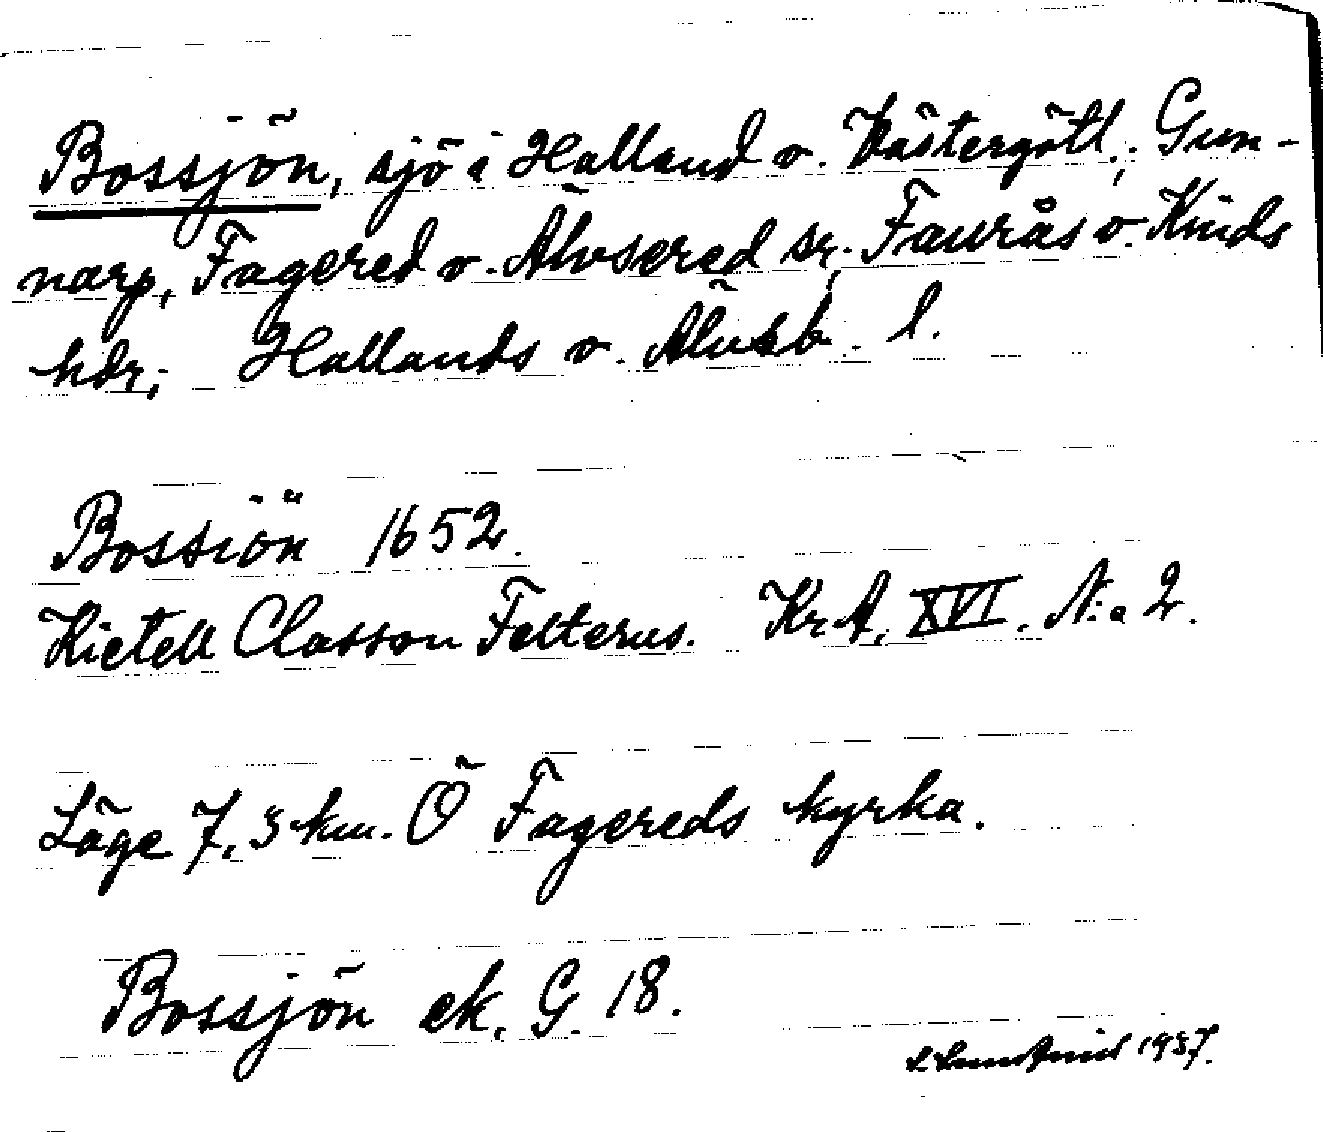 Bossjön, sjö i Halland o. Västergötl.; Gun-
narp, Fagered o. Älvsered sr; Faurås o. Kinds
hdr; Hallands o. Älvsb. l.
Bossiön 1652.
Kietell Classon Felterus. KrA, XVI. N:o 2.
Läge 7,3 km. Ö Fagereds kyrka.
Bossjön ek. G. 18.
1937.